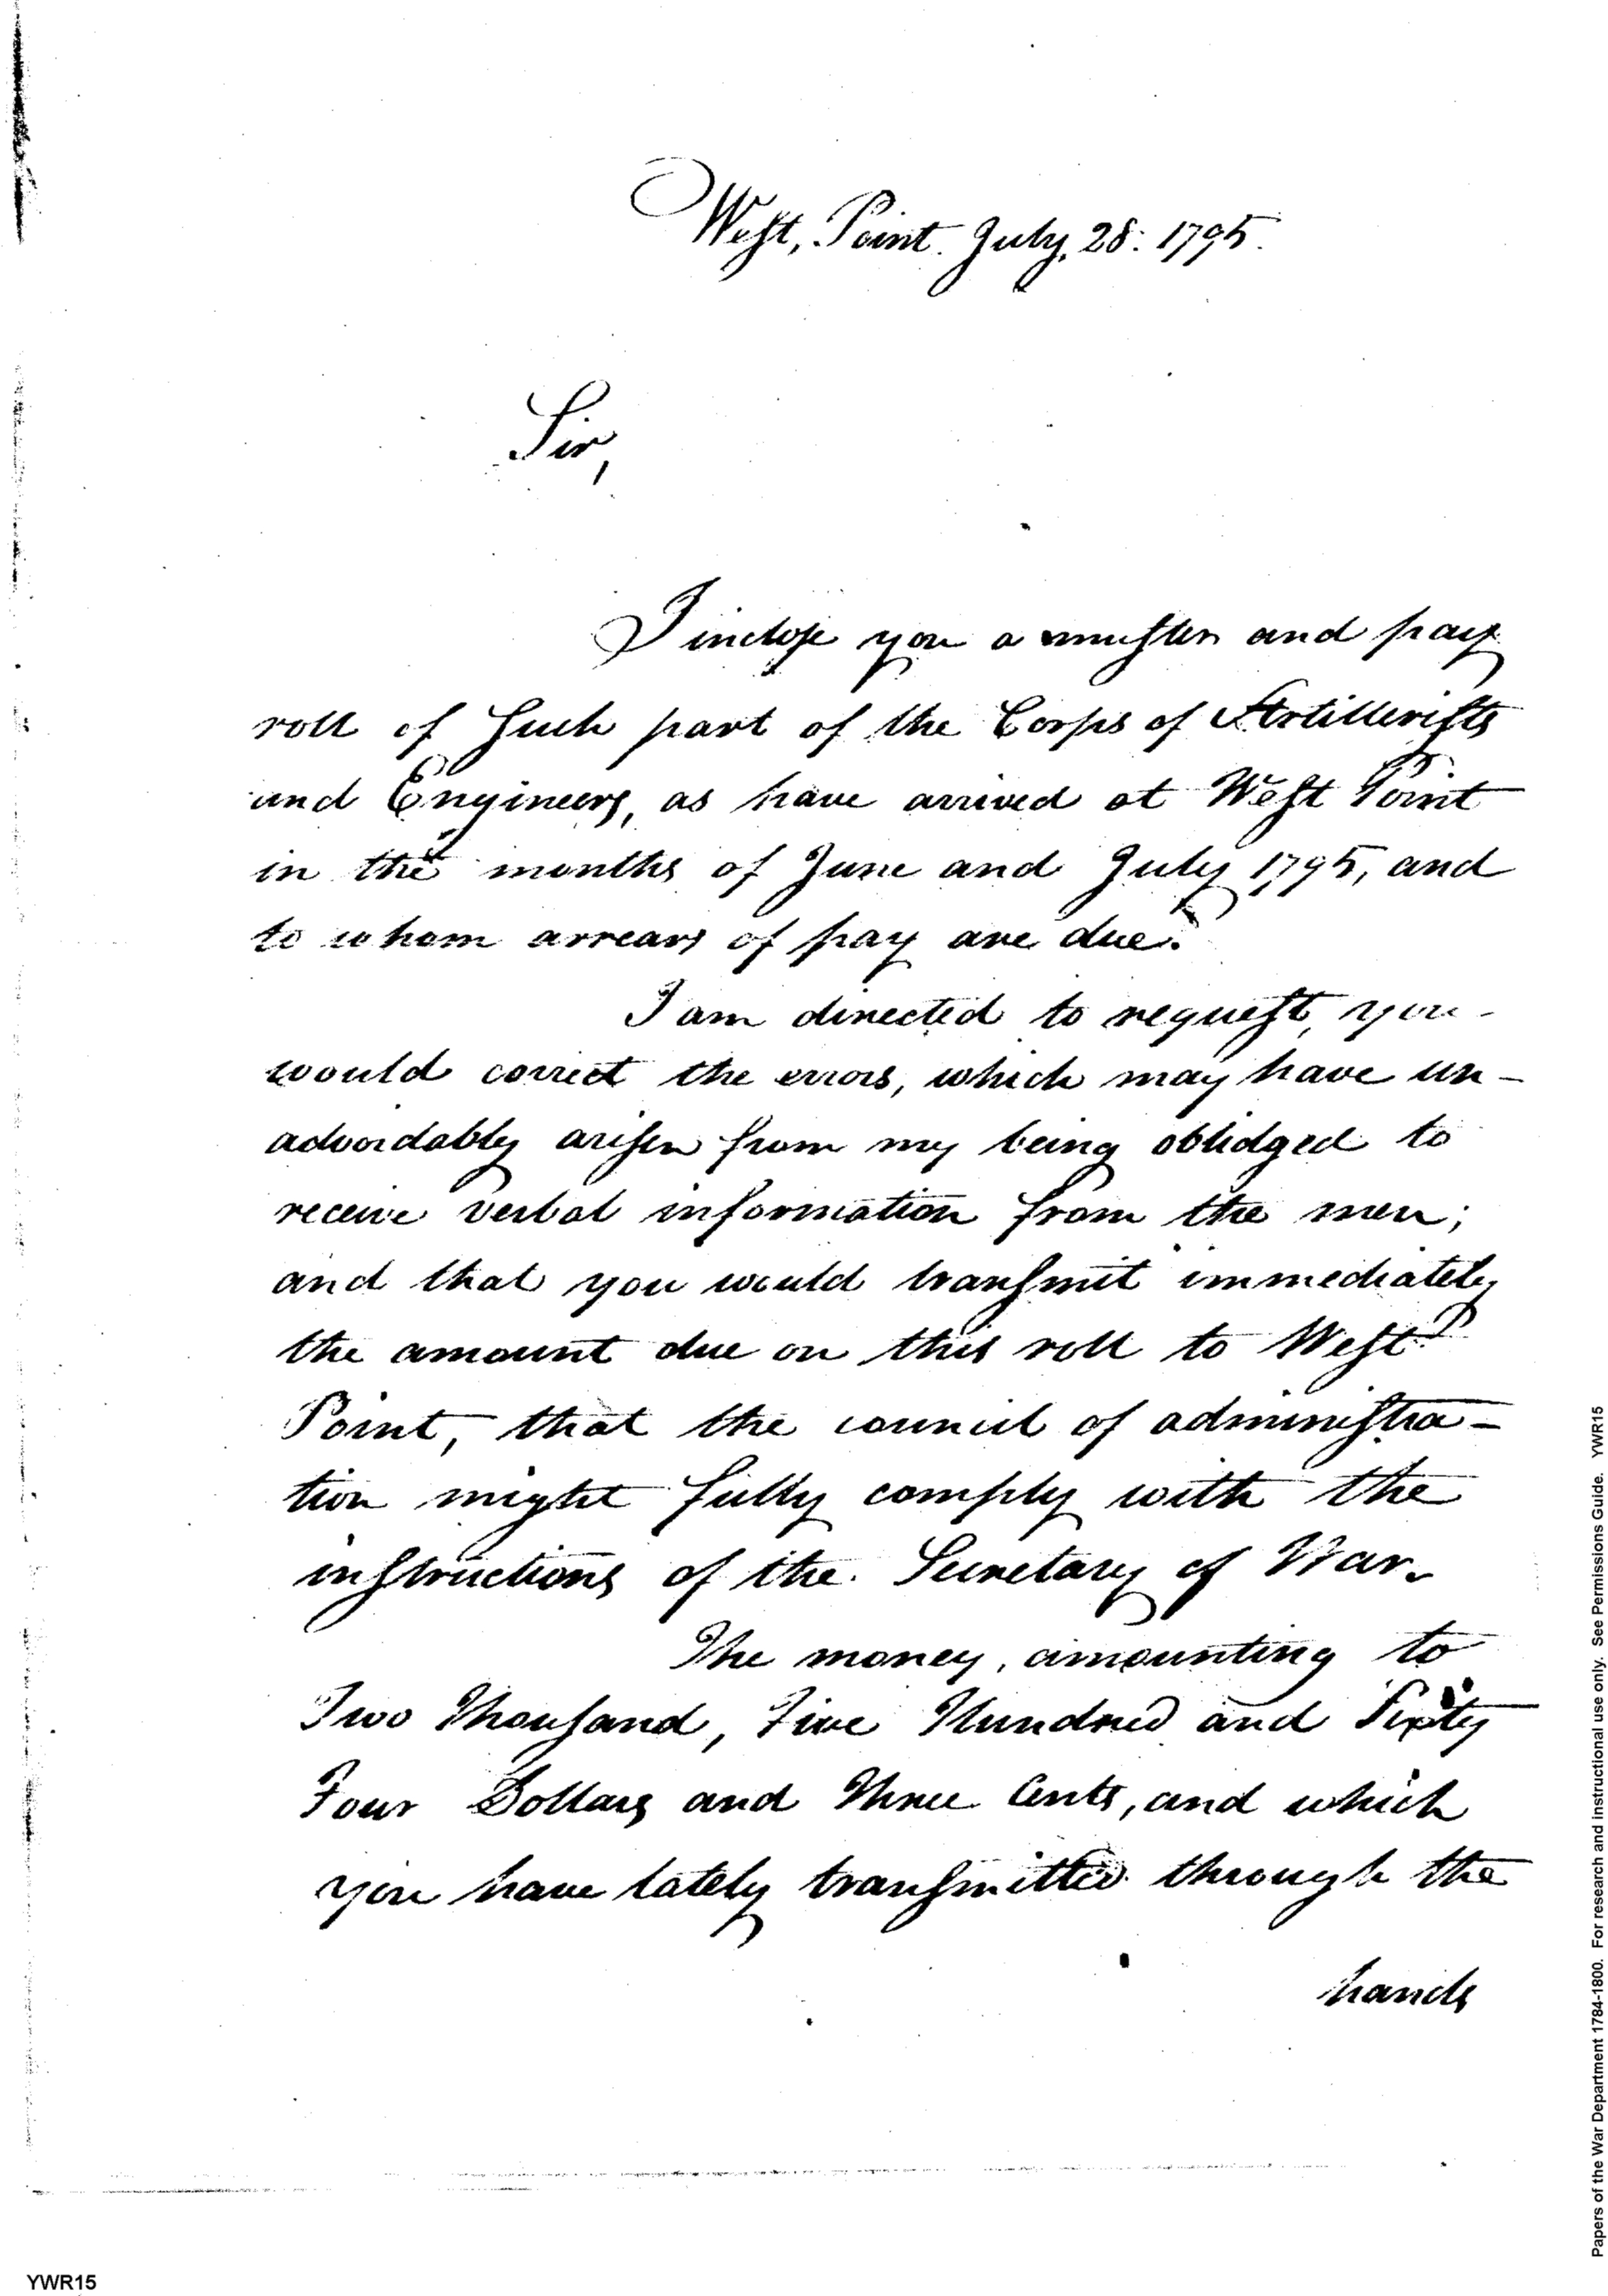 West, Point. July, 28: 1795.
Sir,
I inclose you a muster and pay
roll of Such part of the Corps of Artillerists
and Engineers, as have arrived at West Point
in the months of June and July 1795, and
to whom arrears of pay are due.
I am directed to request, you
would correct the errors, which may have un-
advoidably arisen from my being oblidged to
receive verbal information from the men;
and that you would transmit immediately
the amount due on this roll to West
Point, that the council of administra-
tion might fully comply with the
instructions of the Secretary of War.
The money, amounting to
Two Thousand, Five Hundred and Sixty
Four Dollars and Three Cents, and which
you have lately transmitted through the
hands
Papers of the War Department 1784-1800. For research and instructional use only. See Permissions Guide. YWR15
YWR15